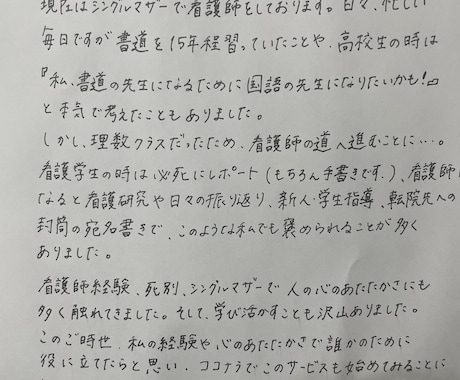 現在はシングルマザーで看護師をしております。日々、忙しい
毎日ですが書道を15年程習っていたことや、高校生の時は
『私、書道の先生になるために国語の先生になりたいかも!』
と本気で考えたこともありました。
しかし、理数クラスだったため、看護師の道へ進むことに…。
看護学生の時は必死にレポート(もちろん手書きです。)、看護師に
なると看護研究や日々の振り返り、新人・学生指導、転院先への
封筒の宛名書きで、このような私でも褒められることが多く
ありました。
看護師経験、死別、シングルマザーで人の心のあたたかさにも
多く触れてきました。そして、学び活かすことも沢山ありました。
このご時世、私の経験や心のあたたかさで誰かのために
役に立てたらと思い、ココナラでこのサービスも始めてみることに